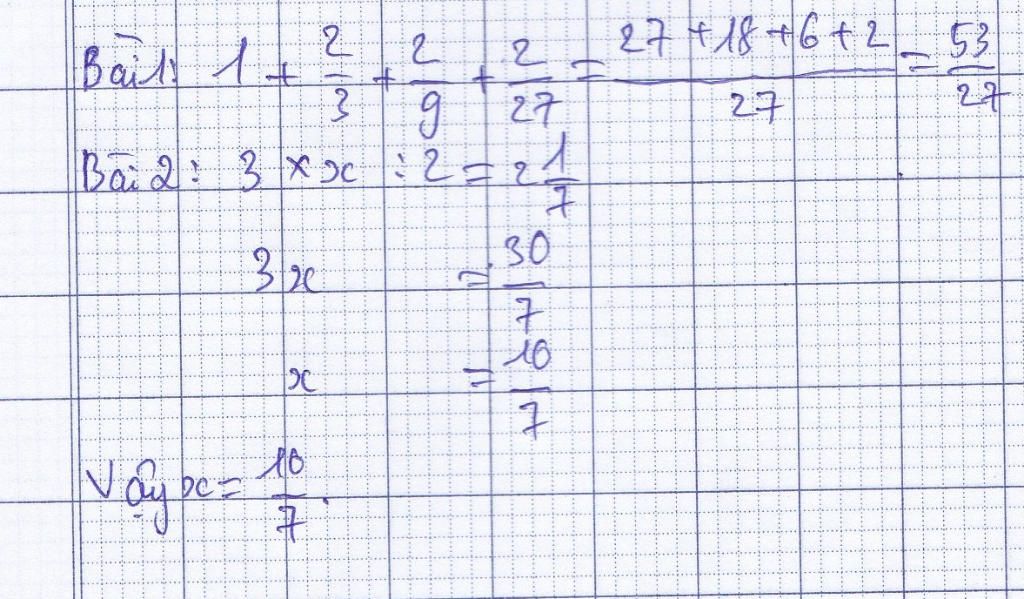 Bài 1: 1 + 2/3 + 2/9 + 2/27 = (27 + 18 + 6 + 2)/27 = 53/27
Bài 2: 3 × x : 2 = 2 1/7
3x = 30/7
x = 10/7
Vậy x = 10/7.